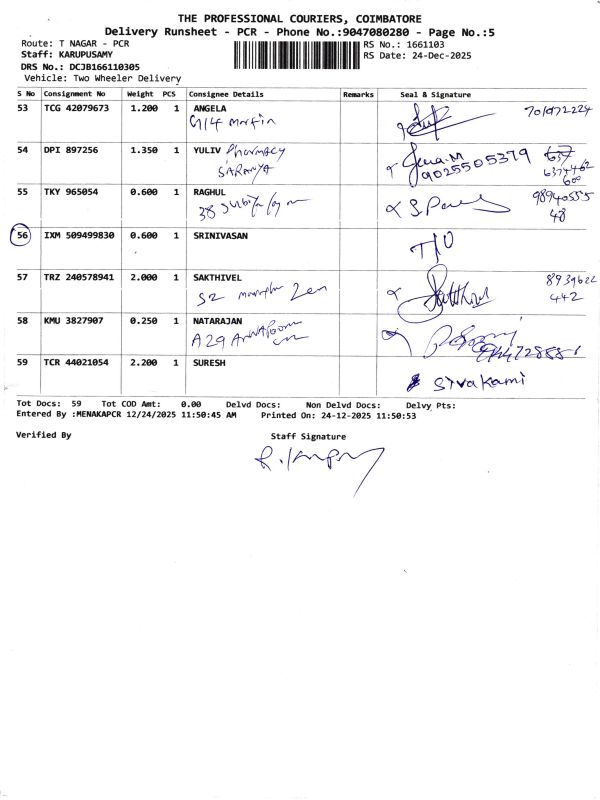 THE PROFESSIONAL COURIERS, COIMBATORE
Delivery Runsheet - PCR - Phone No.:9047080280 - Page No.:5
Route: T NAGAR - PCR
RS No.: 1661103
Staff: KARUPUSAMY
RS Date: 24-Dec-2025
DRS No.: DCJB166110305
Vehicle: Two Wheeler Delivery
S No Consignment No Weight PCS Consignee Details Remarks Seal & Signature
53 TCG 42079673 1.200 1 ANGELA
54 DPI 897256 1.350 1 YULIV Pharmacy
SARANYA
9025505379
55 TKY 965054 0.600 1 RAGHUL
38
48
56 IXM 509499830 0.600 1 SRINIVASAN
57 TRZ 240578941 2.000 1 SAKTHIVEL
Sakthivel
442
58 KMU 3827907 0.250 1 NATARAJAN
A29
59 TCR 44021054 2.200 1 SURESH
Sivakami
Tot Docs: 59 Tot COD Amt: 0.00 Delvd Docs: Non Delvd Docs: Delvy Pts:
Entered By :MENAKAPCR 12/24/2025 11:50:45 AM Printed On: 24-12-2025 11:50:53
Verified By
Staff Signature